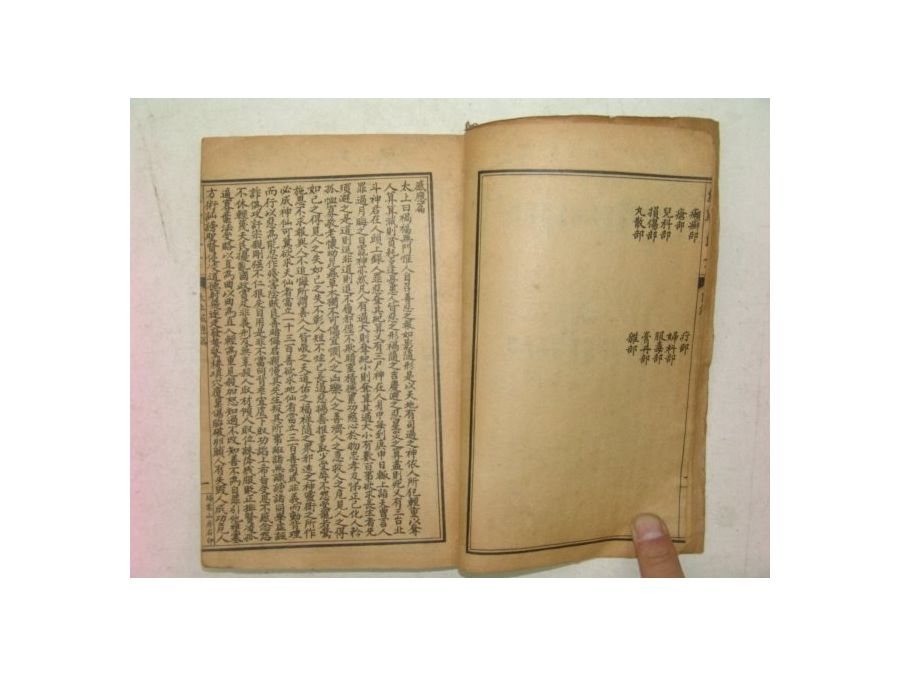 瘡部
兒科部
損傷部
丸散部
疔部
婦科部
服藥部
膏丹部
雜部
感應篇
太上曰禍福無門惟人自召善惡之報如影隨形是以天地有司過之神依人所犯輕重以奪
人算算減則貧耗多逢憂患人皆惡之刑禍隨之吉慶避之惡星災之算盡則死又有三台北
斗神君在人頭上錄人罪惡奪其紀算又有三尸神在人身中每到庚申日輒上詣天曹言人
罪過月晦之日竈神亦然凡人有過大則奪紀小則奪算其過大小有數百事欲求長生者先
須避之是道則進非道則退不履邪徑不欺暗室積德累功慈心於物忠孝友悌正己化人矜
孤恤寡敬老懷幼昆蟲草木猶不可傷宜憫人之凶樂人之善濟人之急救人之危見人之得
如己之得見人之失如己之失不彰人短不炫己長遏惡揚善推多取少受辱不怨受寵若驚
施恩不求報與人不追悔所謂善人人皆敬之天道佑之福祿隨之眾邪遠之神靈衛之所作
必成神仙可冀欲求天仙者當立一千三百善欲求地仙者當立三百善苟或非義而動背理
而行以惡為能忍作殘害陰賊良善暗侮君親慢其先生叛其所事誑諸無識謗諸同學虛誣
詐偽攻訐宗親剛強不仁狠戾自用是非不當向背乖宜虐下取功諂上希旨受恩不感念怨
不休輕蔑天民擾亂國政賞及非義刑及無辜殺人取財傾人取位誅降戮服貶正排賢凌孤
逼寡棄法受賂以直為曲以曲為直入輕為重見殺加怒知過不改知善不為自罪引他壅塞
方術訕謗聖賢侵凌道德射飛逐走發蟄驚棲填穴覆巢傷胎破卵願人有失毀人成功危人